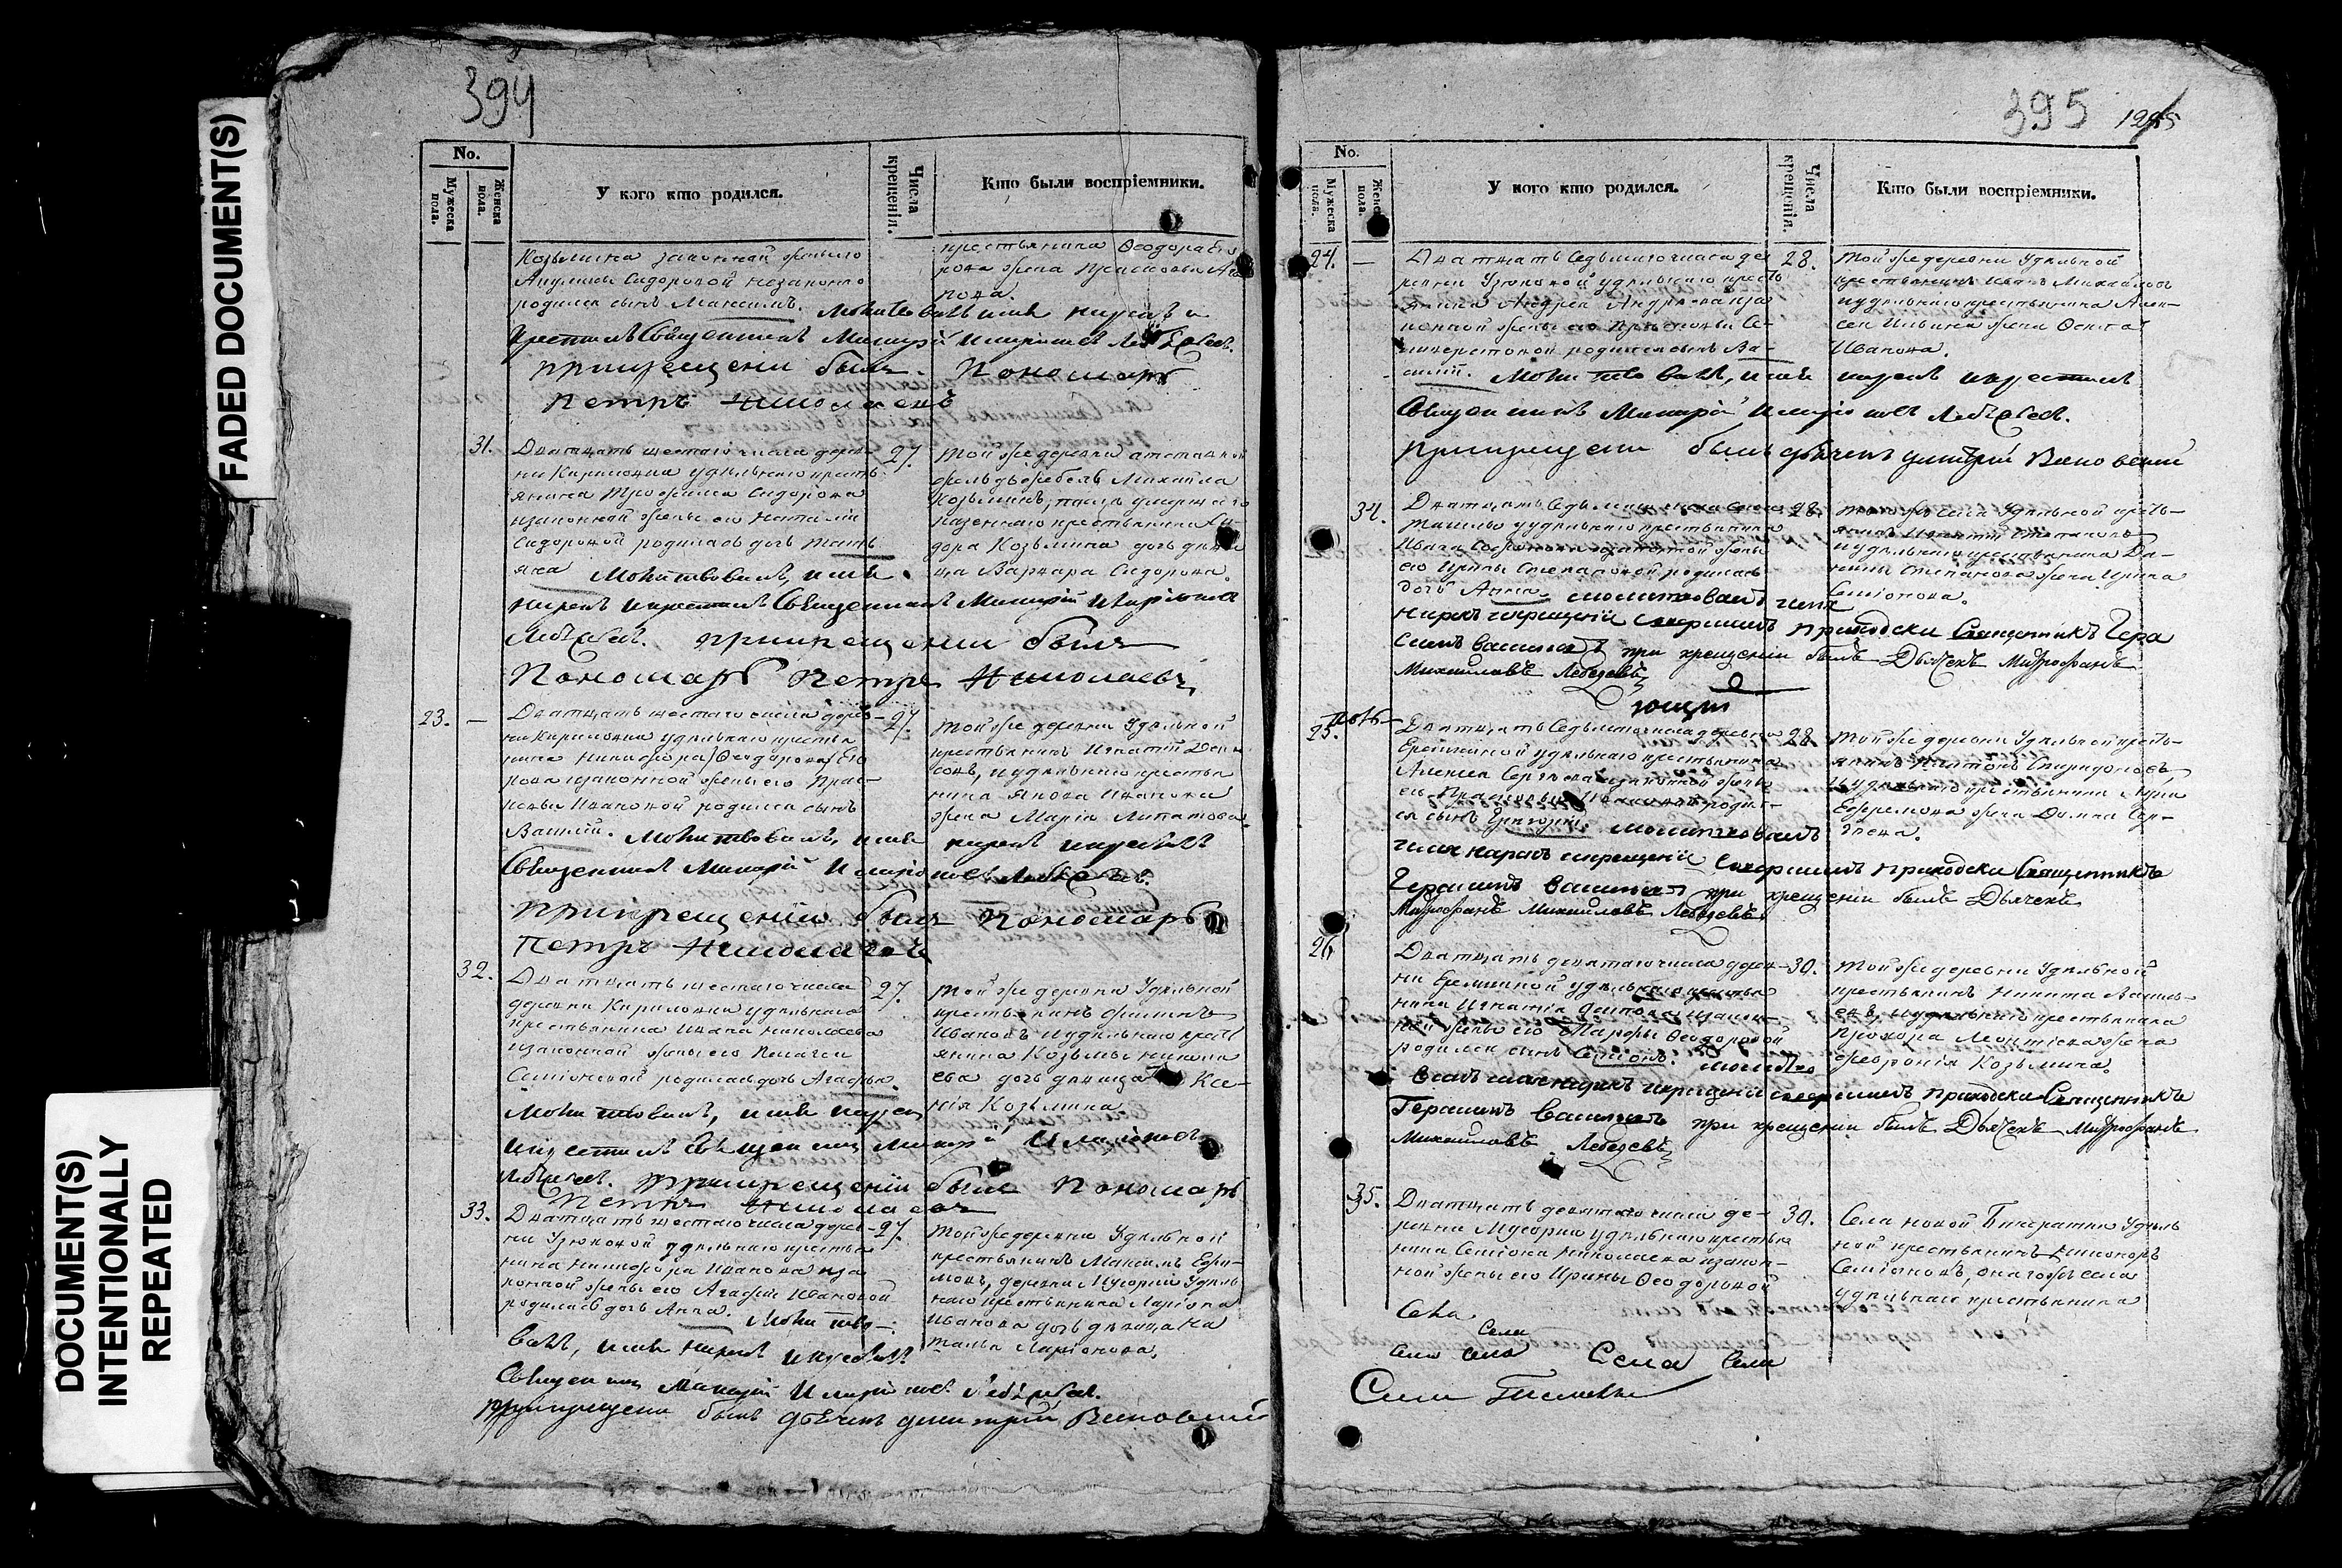 FADED DOCUMENT(S)
DOCUMENT(S)
INTENTIONALLY
REPEATED
394
No.
Мужеска пола.
Женска пола.
У кого кто родился.
Числа крещенія.
Кто были воспріемники.
Козьмина законной
Акулины Сидоровой незаконно
родился сынъ Максимъ. Молитвовалъ имя нарекъ и
крестилъ Священникъ Макарій Иларіоновъ Лебедевъ.
При крещеніи былъ Пономарь
Петръ Николаевъ
крестьянина Ѳеодора
рова жена Прасковья
31. Дватцать шестаго числа дерев-
ни Кириловки удѣльнаго кресть-
янина Трофима Сидорова
и законной жены его Наталіи
Сидоровой родилась дочь Тать-
яна Молитвовалъ, имя
нарекъ и крестилъ Священникъ Макарій Иларіоновъ
Лебедевъ. При крещеніи былъ
Пономарь Петръ Николаевъ
27. Той же деревни отставной
фельдфебель Михайла
Козьминъ,
казеннаго крестьянина Си-
дора Козьмина дочь дѣви-
ца Варвара Сидорова.
23. — Дватцать шестаго числа дерев-
ни Кириловки удѣльнаго крестья
нина Никифора Его
рова и законной жены его Прас-
ковьи Ивановой родился сынъ
Василій. Молитвовалъ, имя нарекъ и крестилъ
Священникъ Макарій Иларіоновъ Лебедевъ.
При крещеніи былъ Пономарь
Петръ Николаевъ
27. Той же деревни Удѣльной
крестьянинъ Игнатій
и удѣльнаго крестья
нина Якова Иванова
жена Марія Липатова.
32. Дватцать шестаго числа
деревни Кириловки удѣльнаго
крестьянина Ивана Николаева
и законной жены его Пелагеи
Семіоновой родилась дочь Агафья.
Молитвовалъ, имя нарекъ
и крестилъ Священникъ Макарій Иларіоновъ
Лебедевъ. При крещеніи былъ Пономарь
Петръ Николаевъ
27. Той же деревни Удѣльной
крестьянинъ Филипъ
Ивановъ и удѣльнаго кресть
янина Козьмы Никола
ева дочь дѣвица Ксе-
нія Козьмина
33. Дватцать шестаго числа дерев-
ни Узюковой удѣльнаго крестья
нина Никифора Иванова и за
конной жены его Агафіи Ивановой
родилась дочь Анна. Молитво-
валъ, имя нарекъ и крестилъ
Священникъ Макарій Иларіоновъ Лебедевъ.
При крещеніи былъ дьячекъ Димитрій
27. Той же деревни Удѣльной
крестьянинъ Максимъ Ефи-
мовъ, деревни Мусорки Удѣль
наго крестьянина Ларіона
Иванова дочь дѣвица На
талья Ларіонова.
395
No.
Мужеска пола.
Женска пола.
У кого кто родился.
Числа крещенія.
Кто были воспріемники.
24. — Дватцать седьмаго числа де
ревни Узюковой удѣльнаго кресть
янина Андрея Андреева и за
конной жены его Прасковьи Се-
ливерстовой родился сынъ Ва-
силій. Молитвовалъ, имя нарекъ и крестилъ
Священникъ Макарій Иларіоновъ Лебедевъ.
При крещеніи былъ дьячекъ Димитрій
28. Той же деревни Удѣльной
крестьянинъ Иванъ Михайловъ
и удѣльнаго крестьянина Алек-
сея Ильина жена Ѳекла
Иванова.
34. Дватцать седьмаго числа села
Ташлы удѣльнаго крестьянина
Ивана Софронова и законной жены
его Ирины Степановой родилась
дочь Анна. молитвовалъ имя
нарекъ и крещеніе совершилъ приходски Священникъ Гера
симъ Васильевъ при крещеніи былъ Дьячекъ Митрофанъ
Михаиловъ Лебедевъ
28. Того же села Удѣльной кресть-
янинъ Степановъ
и удѣльнаго крестьянина Да-
нилы Степанова жена Ирина
Семіонова.
25. Дватцать седьмаго числа деревни
Еремкиной удѣльнаго крестьянина
Алексея Сергѣева и законной жены
его родил-
ся сынъ Григорій. молитвовалъ
имя нарекъ и крещеніе совершилъ приходски Священникъ
Герасимъ Васильевъ при крещеніи былъ Дьячекъ
Митрофанъ Михаиловъ Лебедевъ
28. Той же деревни Удѣльной кресть-
янинъ Платонъ Спиридоновъ
и удѣльнаго крестьянина
Ефремова жена Домна Сер-
гѣева.
26. Дватцать девятаго числа дерев-
ни Еремкиной удѣльнаго крестья
нина Игнатія Осипова и закон-
ной жены его Марфы Ѳеодоровой
родился сынъ Семіонъ. молитво
валъ имя нарекъ и крещеніе совершилъ приходски Священникъ
Герасимъ Васильевъ при крещеніи былъ Дьячекъ Митрофанъ
Михаиловъ Лебедевъ
30. Той же деревни Удѣльной
крестьянинъ Никита Василь-
евъ, и удѣльнаго крестьянина
Прохора Леонтіева жена
Февронія Козьмина.
35. Дватцать девятаго числа де-
ревни Мусорки удѣльнаго крестья
нина Семіона Николаева и закон-
ной жены его Ирины Ѳеодоровой
30. Села новой Бинарадки Удѣль
ной крестьянинъ Никаноръ
Семіоновъ, онаго же села
удѣльнаго крестьянина
Села
Села
Села Села Села